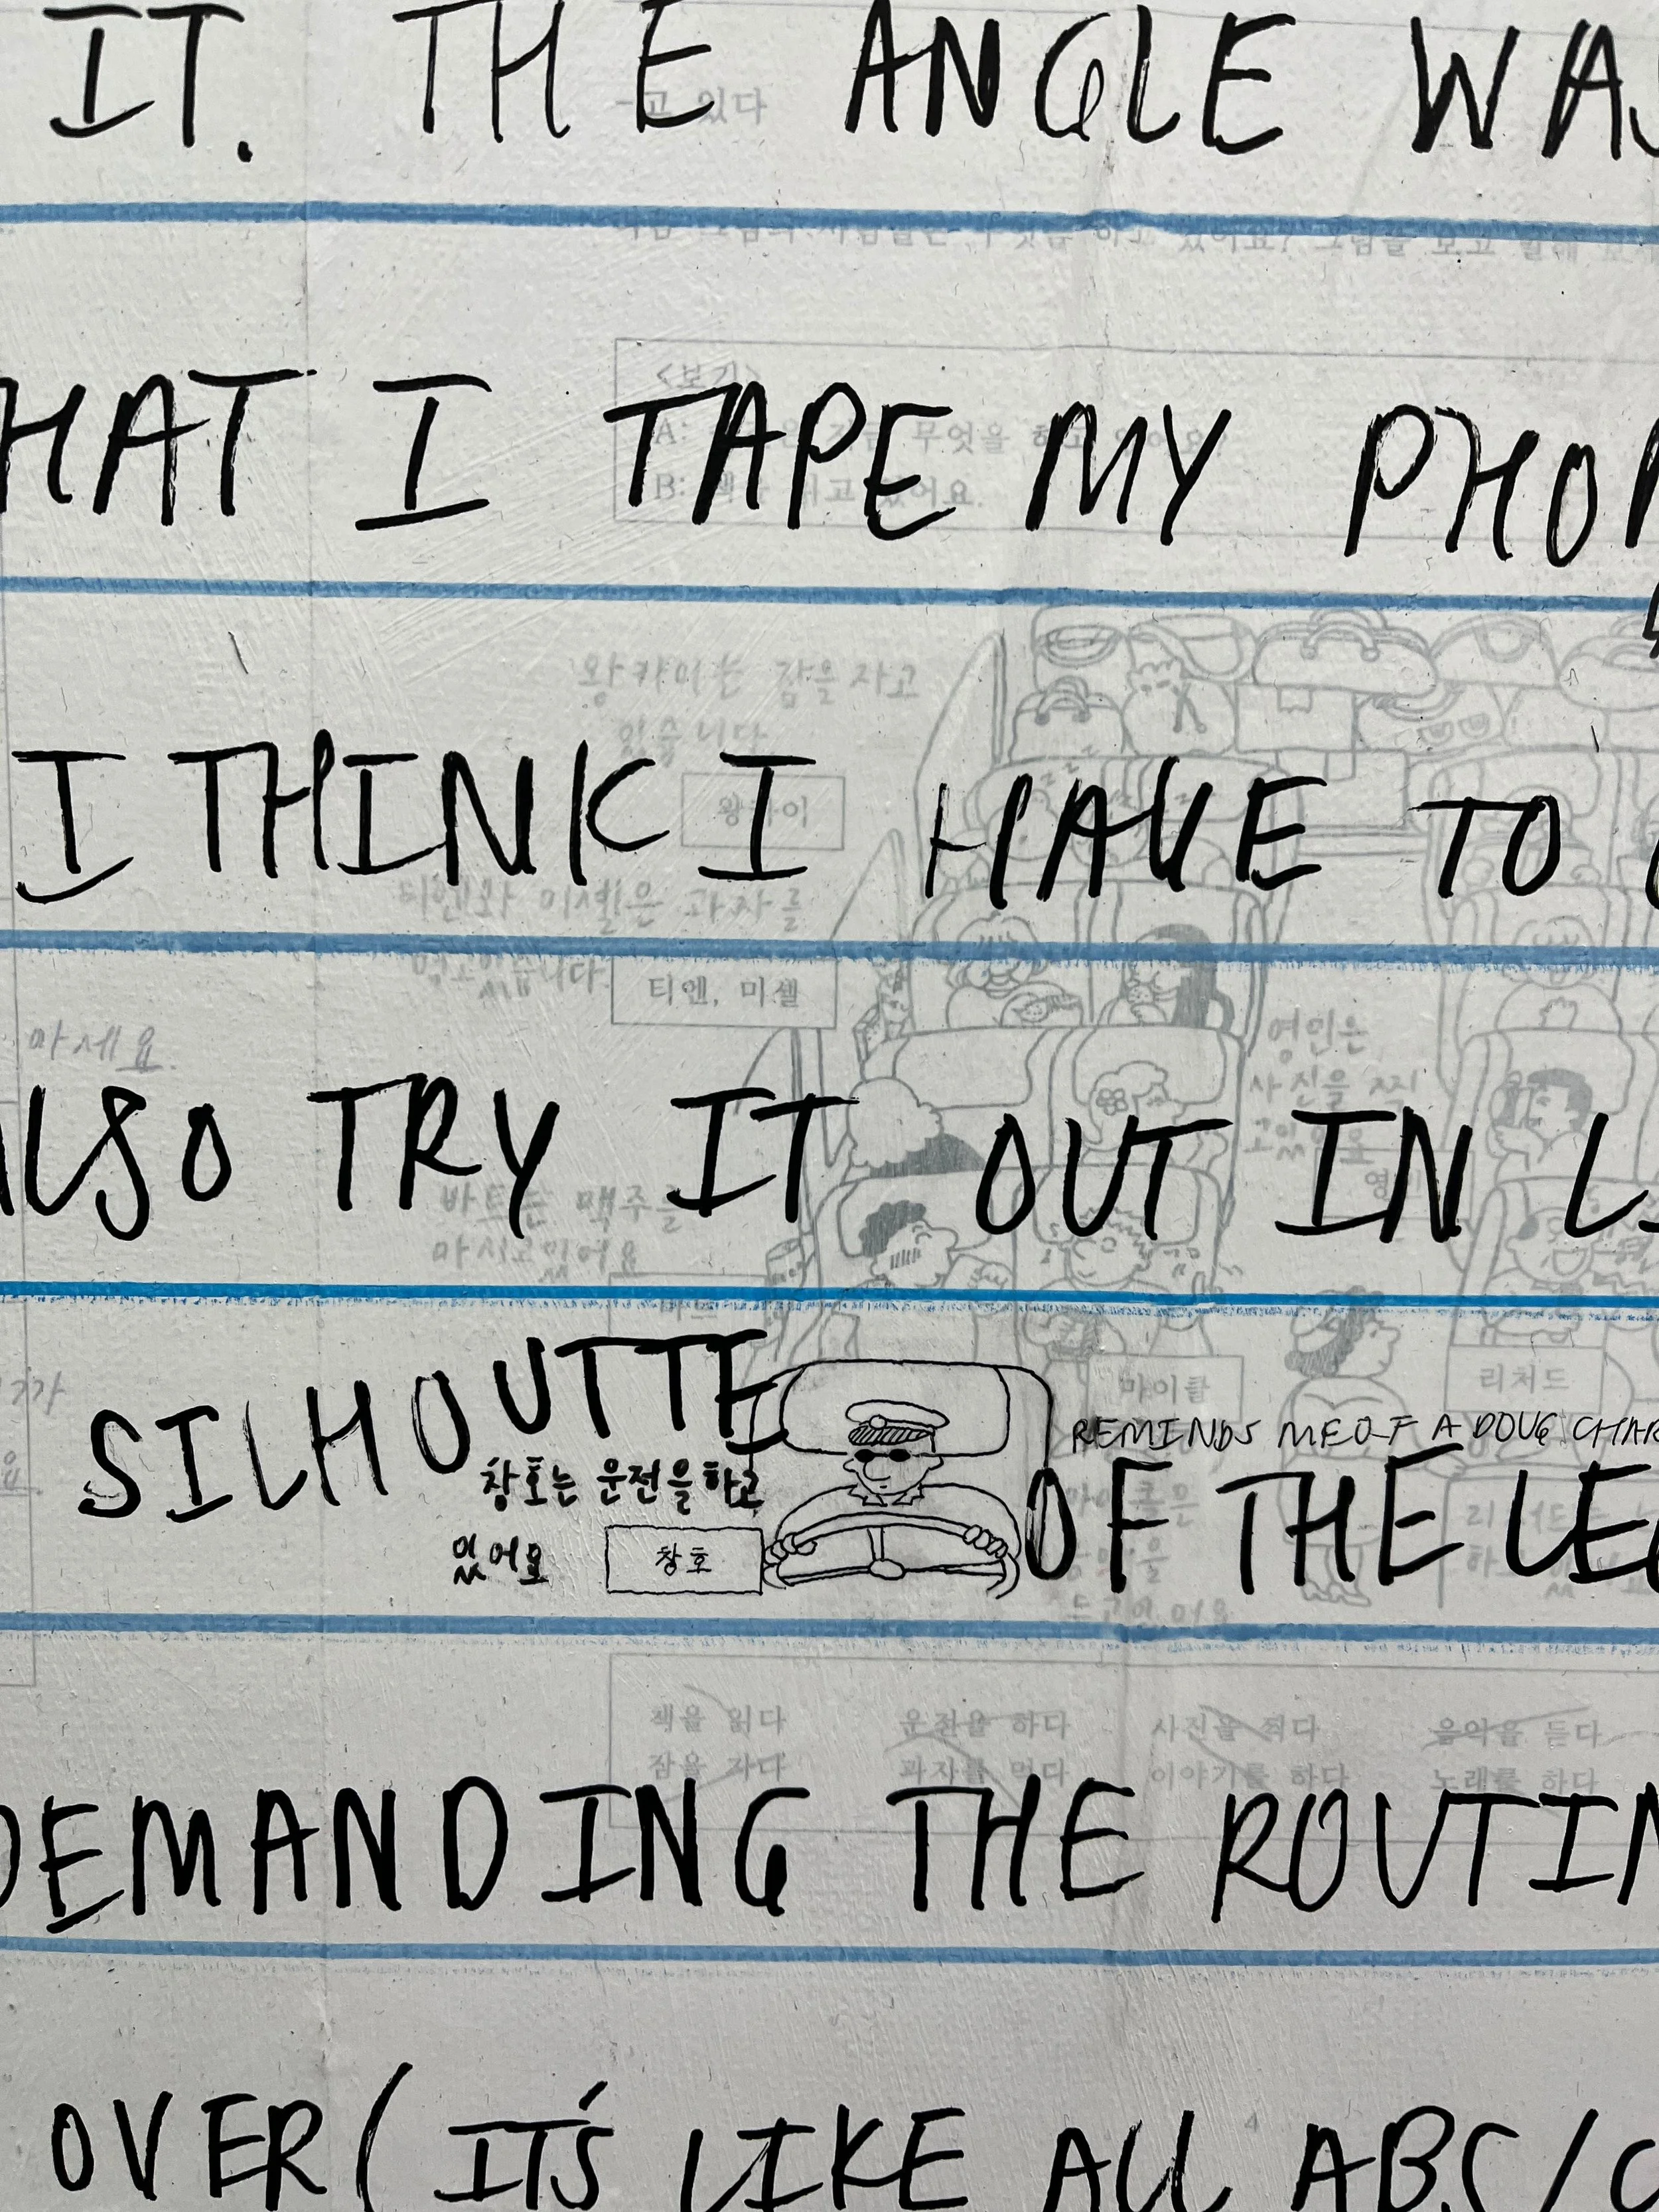 IT. THE ANGLE WAS
-고 있다
다음 그림의 사람들은 무엇을 하고 있어요? 그림을 보고 말해 보세
<보기>
HAT I TAPE MY PHON
A: 무엇을 하고 있어요?
B: 책을 있어요.
왕카이는 잠을 자고
있습니다.
I THINK I HAVE TO
왕카이
티엔와 미셸은 과자를
먹고있습니다.
티엔, 미셸
마세요.
영민은
사진을 찍
고있어요
ALSO TRY IT OUT IN L
바트는 맥주를
마시고있어요
SILHOUTTE
마이클
리처드
REMINDS ME OF A DOUG CHAR
창호는 운전을하고
있어요
창호
OF THE LE
책을 읽다 운전을 하다 사진을 찍다 음악을 듣다
잠을 자다 과자를 먹다 이야기를 하다 노래를 하다
DEMANDING THE ROUTIN
OVER (IT'S LIKE ALL ABS/
4